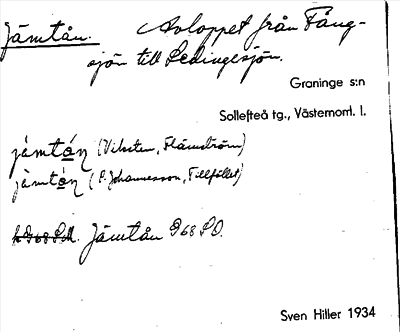 Jämtån. Avloppet från Fång-
sjön till Ledingesjön.
Graninge s:n
Sollefteå tg., Västernorrl. l.
jämtán (Viksten, Flärnström)
jämtán (P. Johannesson, Tillfället)
Jämtån G68 SO.
Sven Hiller 1934